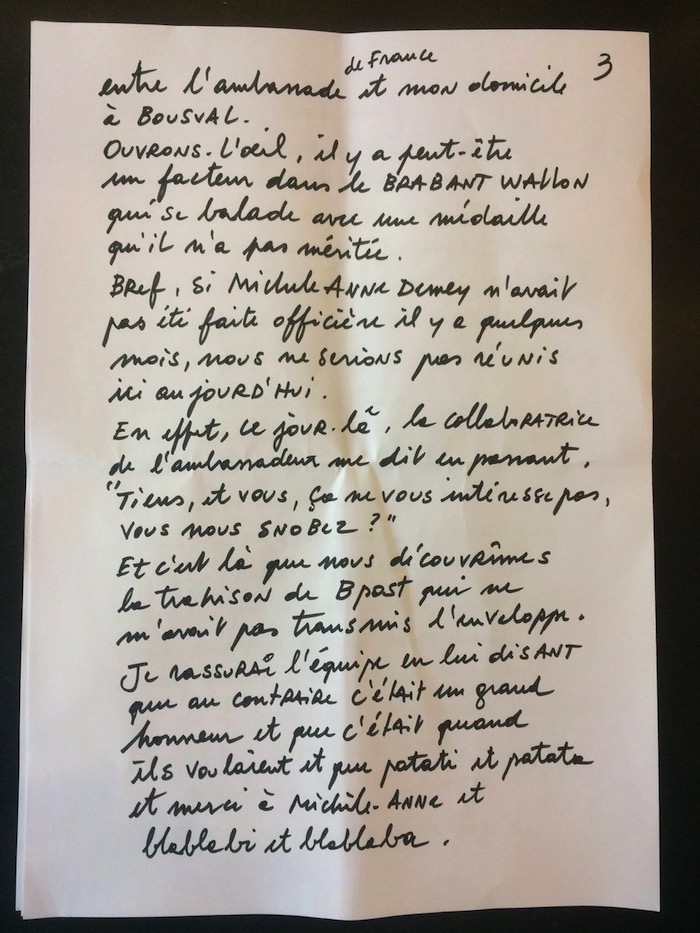 3
de France
entre l'ambassade et mon domicile
à BOUSVAL.
OUVRONS-L'œil, il y a peut-être
un facteur dans le BRABANT WALLON
qui se balade avec une médaille
qu'il n'a pas méritée.
BREF, Si Michèle ANNE Demey n'avait
pas été faite officière il y a quelques
mois, nous ne serions pas réunis
ici aujOURD'HUI.
En effet, ce jour-là, la collaboRATRICE
de l'ambassadeur me dit en passant,
"Tiens, et vous, ça ne vous intéresse pas,
vous nous SNOBEZ ?"
Et c'est là que nous découvrîmes
la trahison de Bpost qui ne
m'avait pas transmis l'enveloppe.
Je rassurai l'équipe en lui disANT
que au contRAIRE c'était un grand
honneur et que c'était quand
ils voulaient et que patati et patata
et merci à Michèle-ANNE et
blablabi et blablaba.